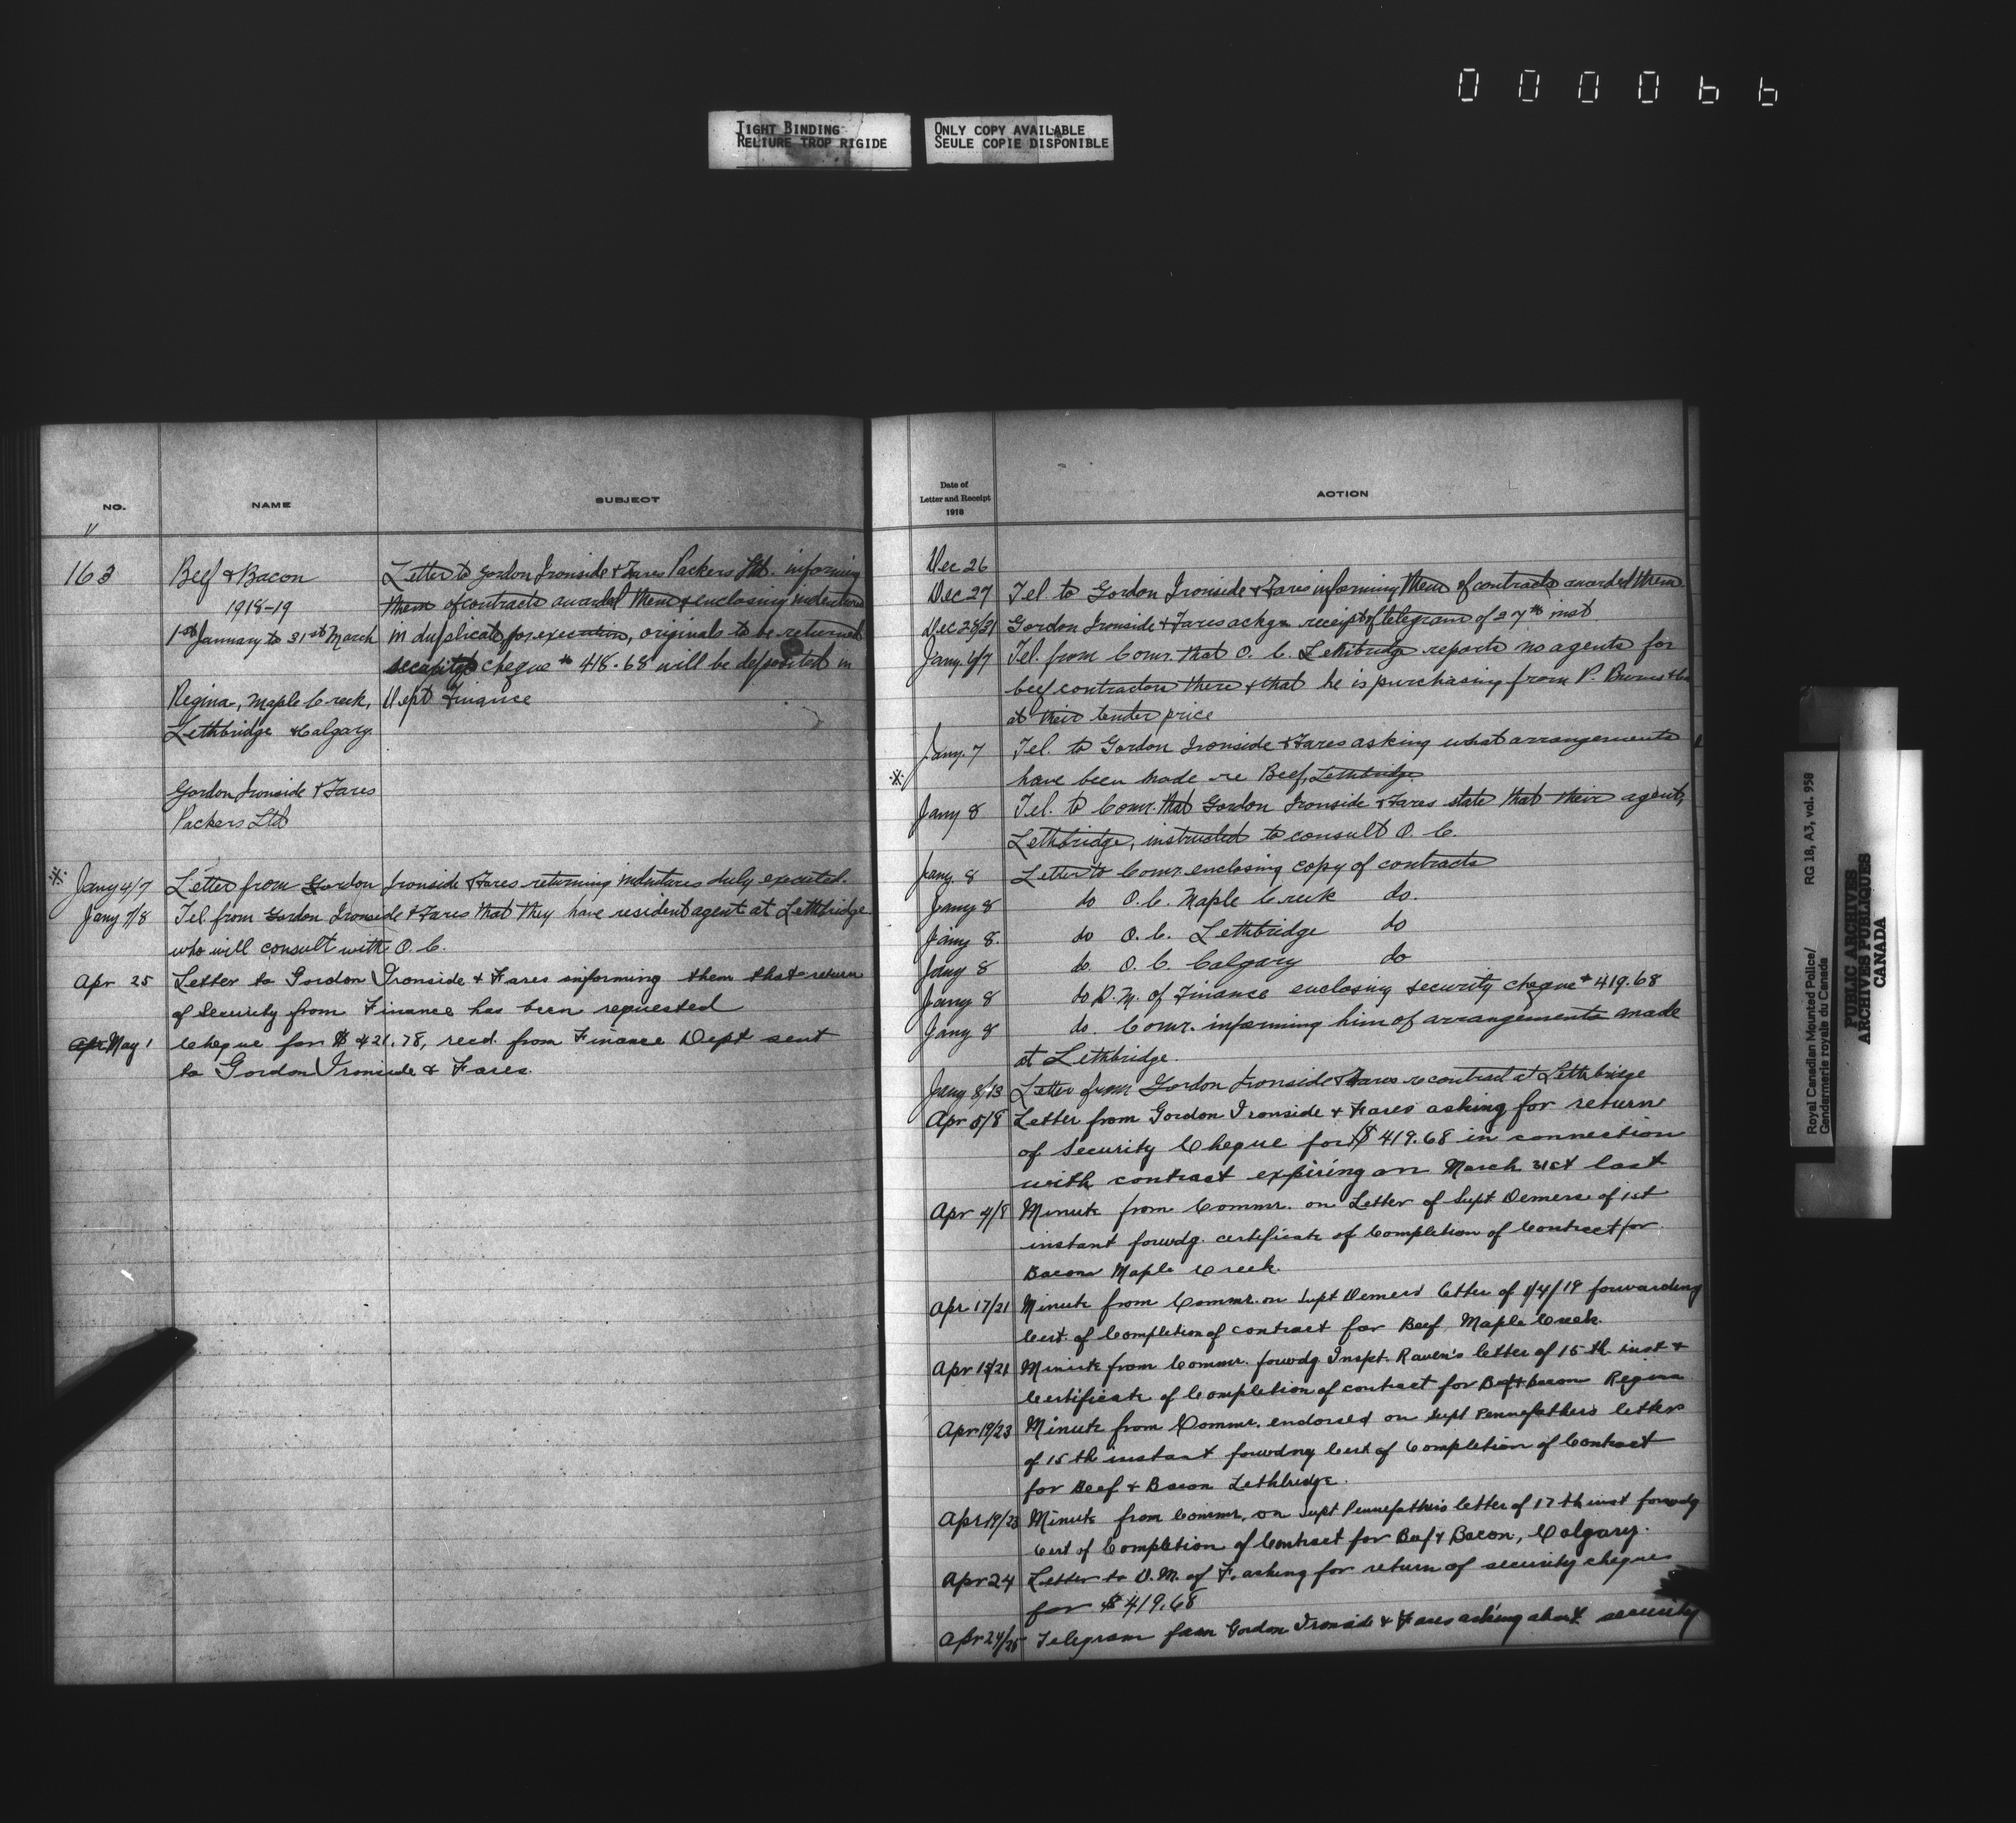 000066
TIGHT BINDING
RELIURE TROP RIGIDE
ONLY COPY AVAILABLE
SEULE COPIE DISPONIBLE
NO.
NAME
SUBJECT
163
Beef & Bacon
1918-19
1st January to 31st March
Regina, Maple Creek,
Lethbridge & Calgary
Gordon Ironside & Fares
Packers Ltd
Letter to Gordon Ironside & Fares Packers Ltd. informing
them of contracts awarded them & enclosing indentures
in duplicate for execution, originals to be returned
security cheque $ 418.68 will be deposited in
Dept Finance
Jany 4/7 Letter from Gordon Ironside & Fares returning indentures duly executed.
Jany 7/8 Tel. from Gordon Ironside & Fares that they have resident agent at Lethbridge
who will consult with O.C.
Apr 25 Letter to Gordon Ironside & Fares informing them that return
of Security from Finance has been requested
Apr May 1 Cheque for $ 421.78, recd. from Finance Dept sent
to Gordon Ironside & Fares.
Date of
Letter and Receipt
1918
ACTION
Dec 26
Dec 27 Tel. to Gordon Ironside & Fares informing them of contracts awarded them
Dec 28/31 Gordon Ironside & Fares ackge receipt of telegram of 27th inst
Jany. 4/7 Tel. from Comr. that O.C. Lethbridge reports no agents for
beef contractors there & that he is purchasing from P. Burns & Co
at their tender price
Jany. 7 Tel. to Gordon Ironside & Fares asking what arrangements
have been made re Beef, Lethbridge
Jany 8 Tel. to Comr. that Gordon Ironside & Fares state that their agent,
Lethbridge, instructed to consult O.C.
Jany. 8 Letter to Comr. enclosing copy of contracts
Jany 8 do O.C. Maple Creek do.
Jany 8. do O.C. Lethbridge do
Jany 8 do O.C. Calgary do
Jany 8 do D.M. of Finance enclosing security cheque $419.68
Jany 8 do. Comr. informing him of arrangements made
at Lethbridge.
Jany 8/13 Letter from Gordon Ironside & Fares re contract at Lethbridge
Apr 5/8 Letter from Gordon Ironside & Fares asking for return
of Security Cheque for $ 419.68 in connection
with contract expiring on March 31st last
Apr 4/8 Minute from Commr. on Letter of Supt Demers of 1st
instant forwdg. certificate of Completion of Contract for
Bacon Maple Creek.
Apr 17/21 Minute from Commr. on Supt Demers letter of 1/4/19 forwarding
Cert. of Completion of contract for Beef, Maple Creek.
Apr 15/21 Minute from Commr. forwdg Inspt. Raven's letter of 15th inst &
Certificate of Completion of contract for Beef & Bacon Regina
Apr 19/23 Minute from Commr. endorsed on Supt Pennefather's letter
of 15th instant forwdng Cert of Completion of Contract
for Beef & Bacon Lethbridge.
Apr 19/23 Minute from Commr, on Supt Pennefather's letter of 17th inst forwdg
Cert of Completion of Contract for Beef & Bacon, Calgary.
Apr 24 Letter to D.M. of F. asking for return of security cheque
for $ 419.68
Apr 24/25 Telegram from Gordon Ironside & Fares asking about security
Royal Canadian Mounted Police/
Gendarmerie royale du Canada
RG 18, A3, vol. 958
PUBLIC ARCHIVES
ARCHIVES PUBLIQUES
CANADA